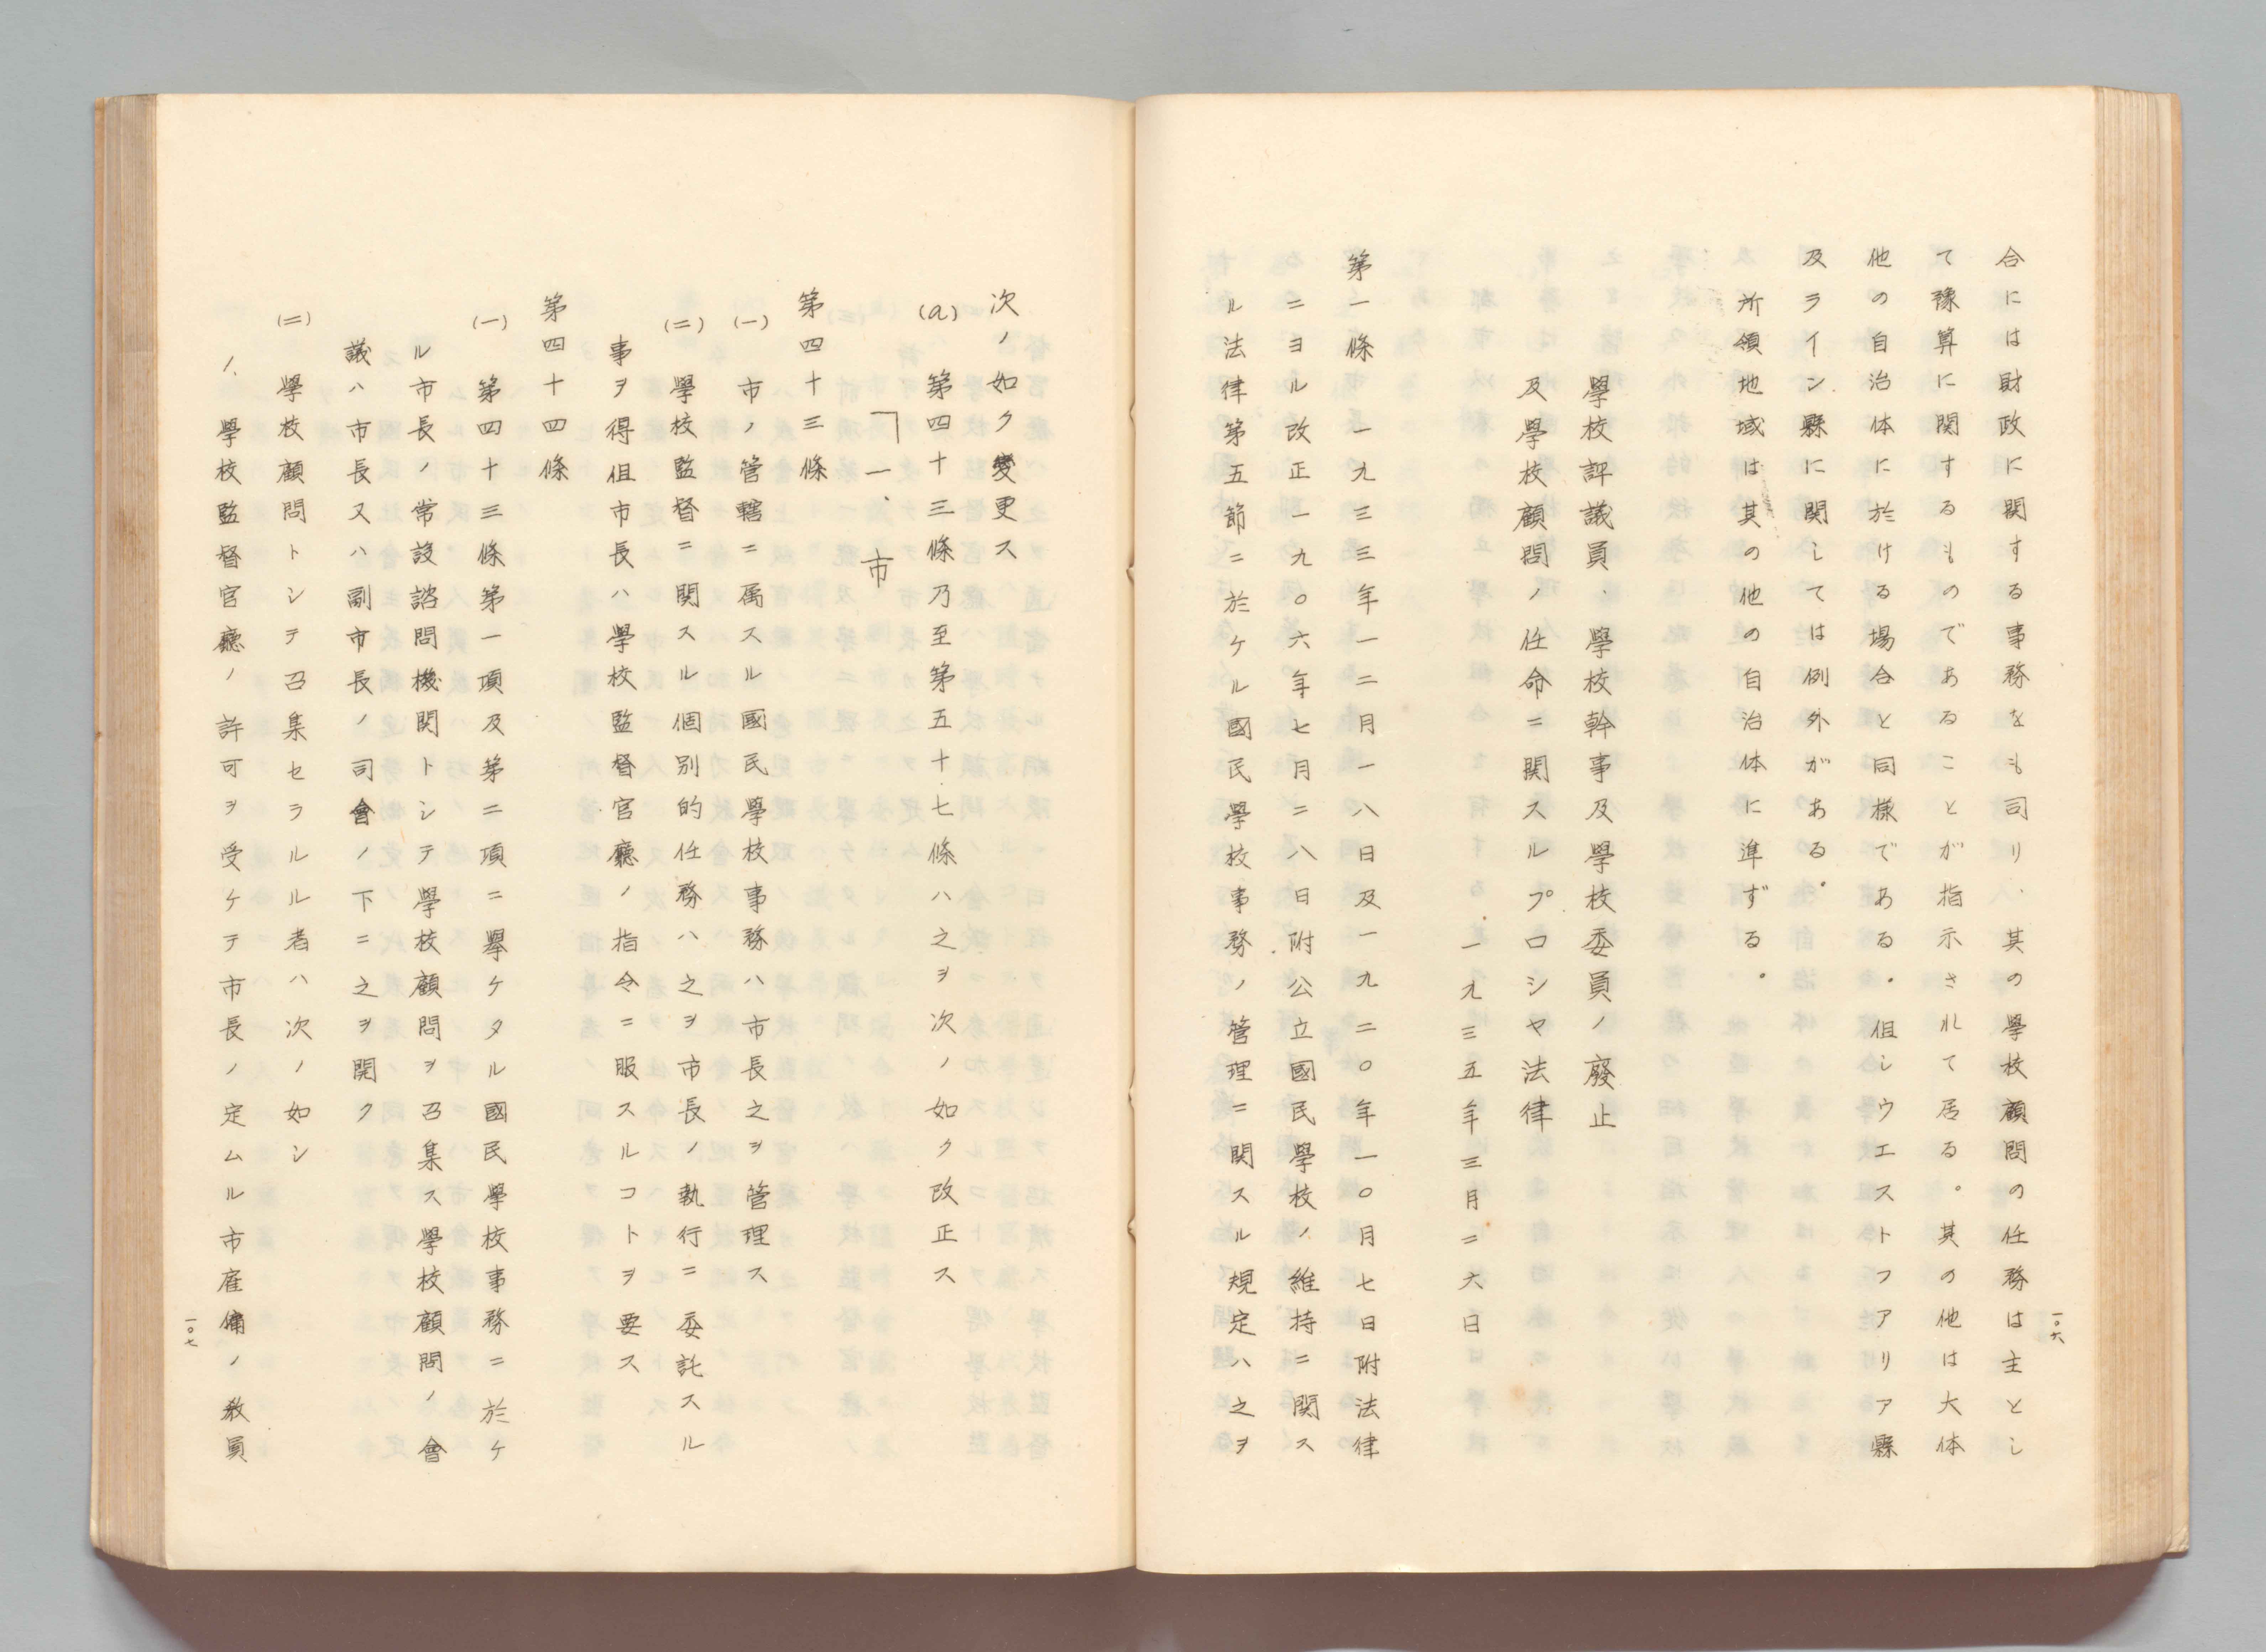 合には財政に関する事務をも司り、其の學校顧問の任務は主とし
て豫算に関するものであることが指示されて居る。其の他は大体
他の自治体に於ける場合と同様である。但しウエストフアリア縣
及ライン縣に関しては例外がある。
所領地域は其の他の自治体に準ずる。
學校評議員、學校幹事及學校委員ノ廢止
及學校顧問ノ任命ニ関スルプロシヤ法律
一九三五年三月二六日
第一條　一九三三年一二月一八日及一九二〇年一〇月七日附法律
ニヨル改正一九〇六年七月二八日附公立國民學校ノ維持ニ関ス
ル法律第五節ニ於ケル國民學校事務ノ管理ニ関スル規定ハ之ヲ
一〇六
次ノ如ク変更ス
(a)　第四十三條乃至第五十七條ハ之ヲ次ノ如ク改正ス
「一、市
第四十三條
(一)　市ノ管轄ニ属スル國民學校事務ハ市長之ヲ管理ス
(二)　學校監督ニ関スル個別的任務ハ之ヲ市長ノ執行ニ委託スル
事ヲ得但市長ハ學校監督官廳ノ指令ニ服スルコトヲ要ス
第四十四條
(一)　第四十三條第一項及第二項ニ擧ケタル國民學校事務ニ於ケ
ル市長ノ常設諮問機関トシテ學校顧問ヲ召集ス學校顧問ノ會
議ハ市長又ハ副市長ノ司會ノ下ニ之ヲ開ク
(二)　學校顧問トシテ召集セラルル者ハ次ノ如シ
1.　學校監督官廳ノ許可ヲ受ケテ市長ノ定ムル市雇傭ノ教員
一〇七